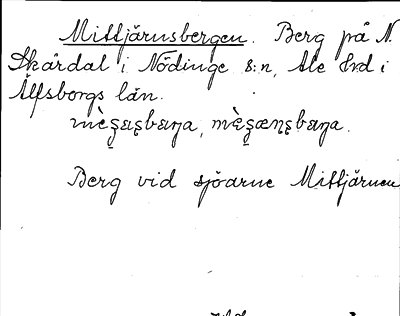 Mittjärnsbergen. Berg på N.
Skårdal i Nödinge s:n, Ale hrd i
Älfsborgs län.
Berg vid sjöarne Mittjärnen